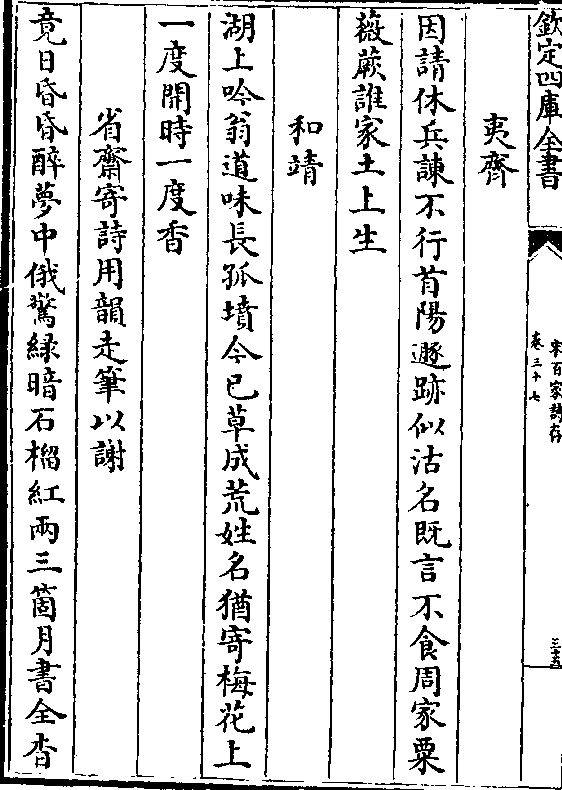 欽定四庫全書
宋百家詩存
卷三十七
三十五
夷齊
因請休兵諫不行首陽遯跡似沽名既言不食周家粟
薇蕨誰家土上生
和靖
湖上吟翁道味長孤墳今已草成荒姓名猶寄梅花上
一度開時一度香
省齋寄詩用韻走筆以謝
竟日昏昏醉夢中俄驚綠暗石榴紅兩三箇月書全杳